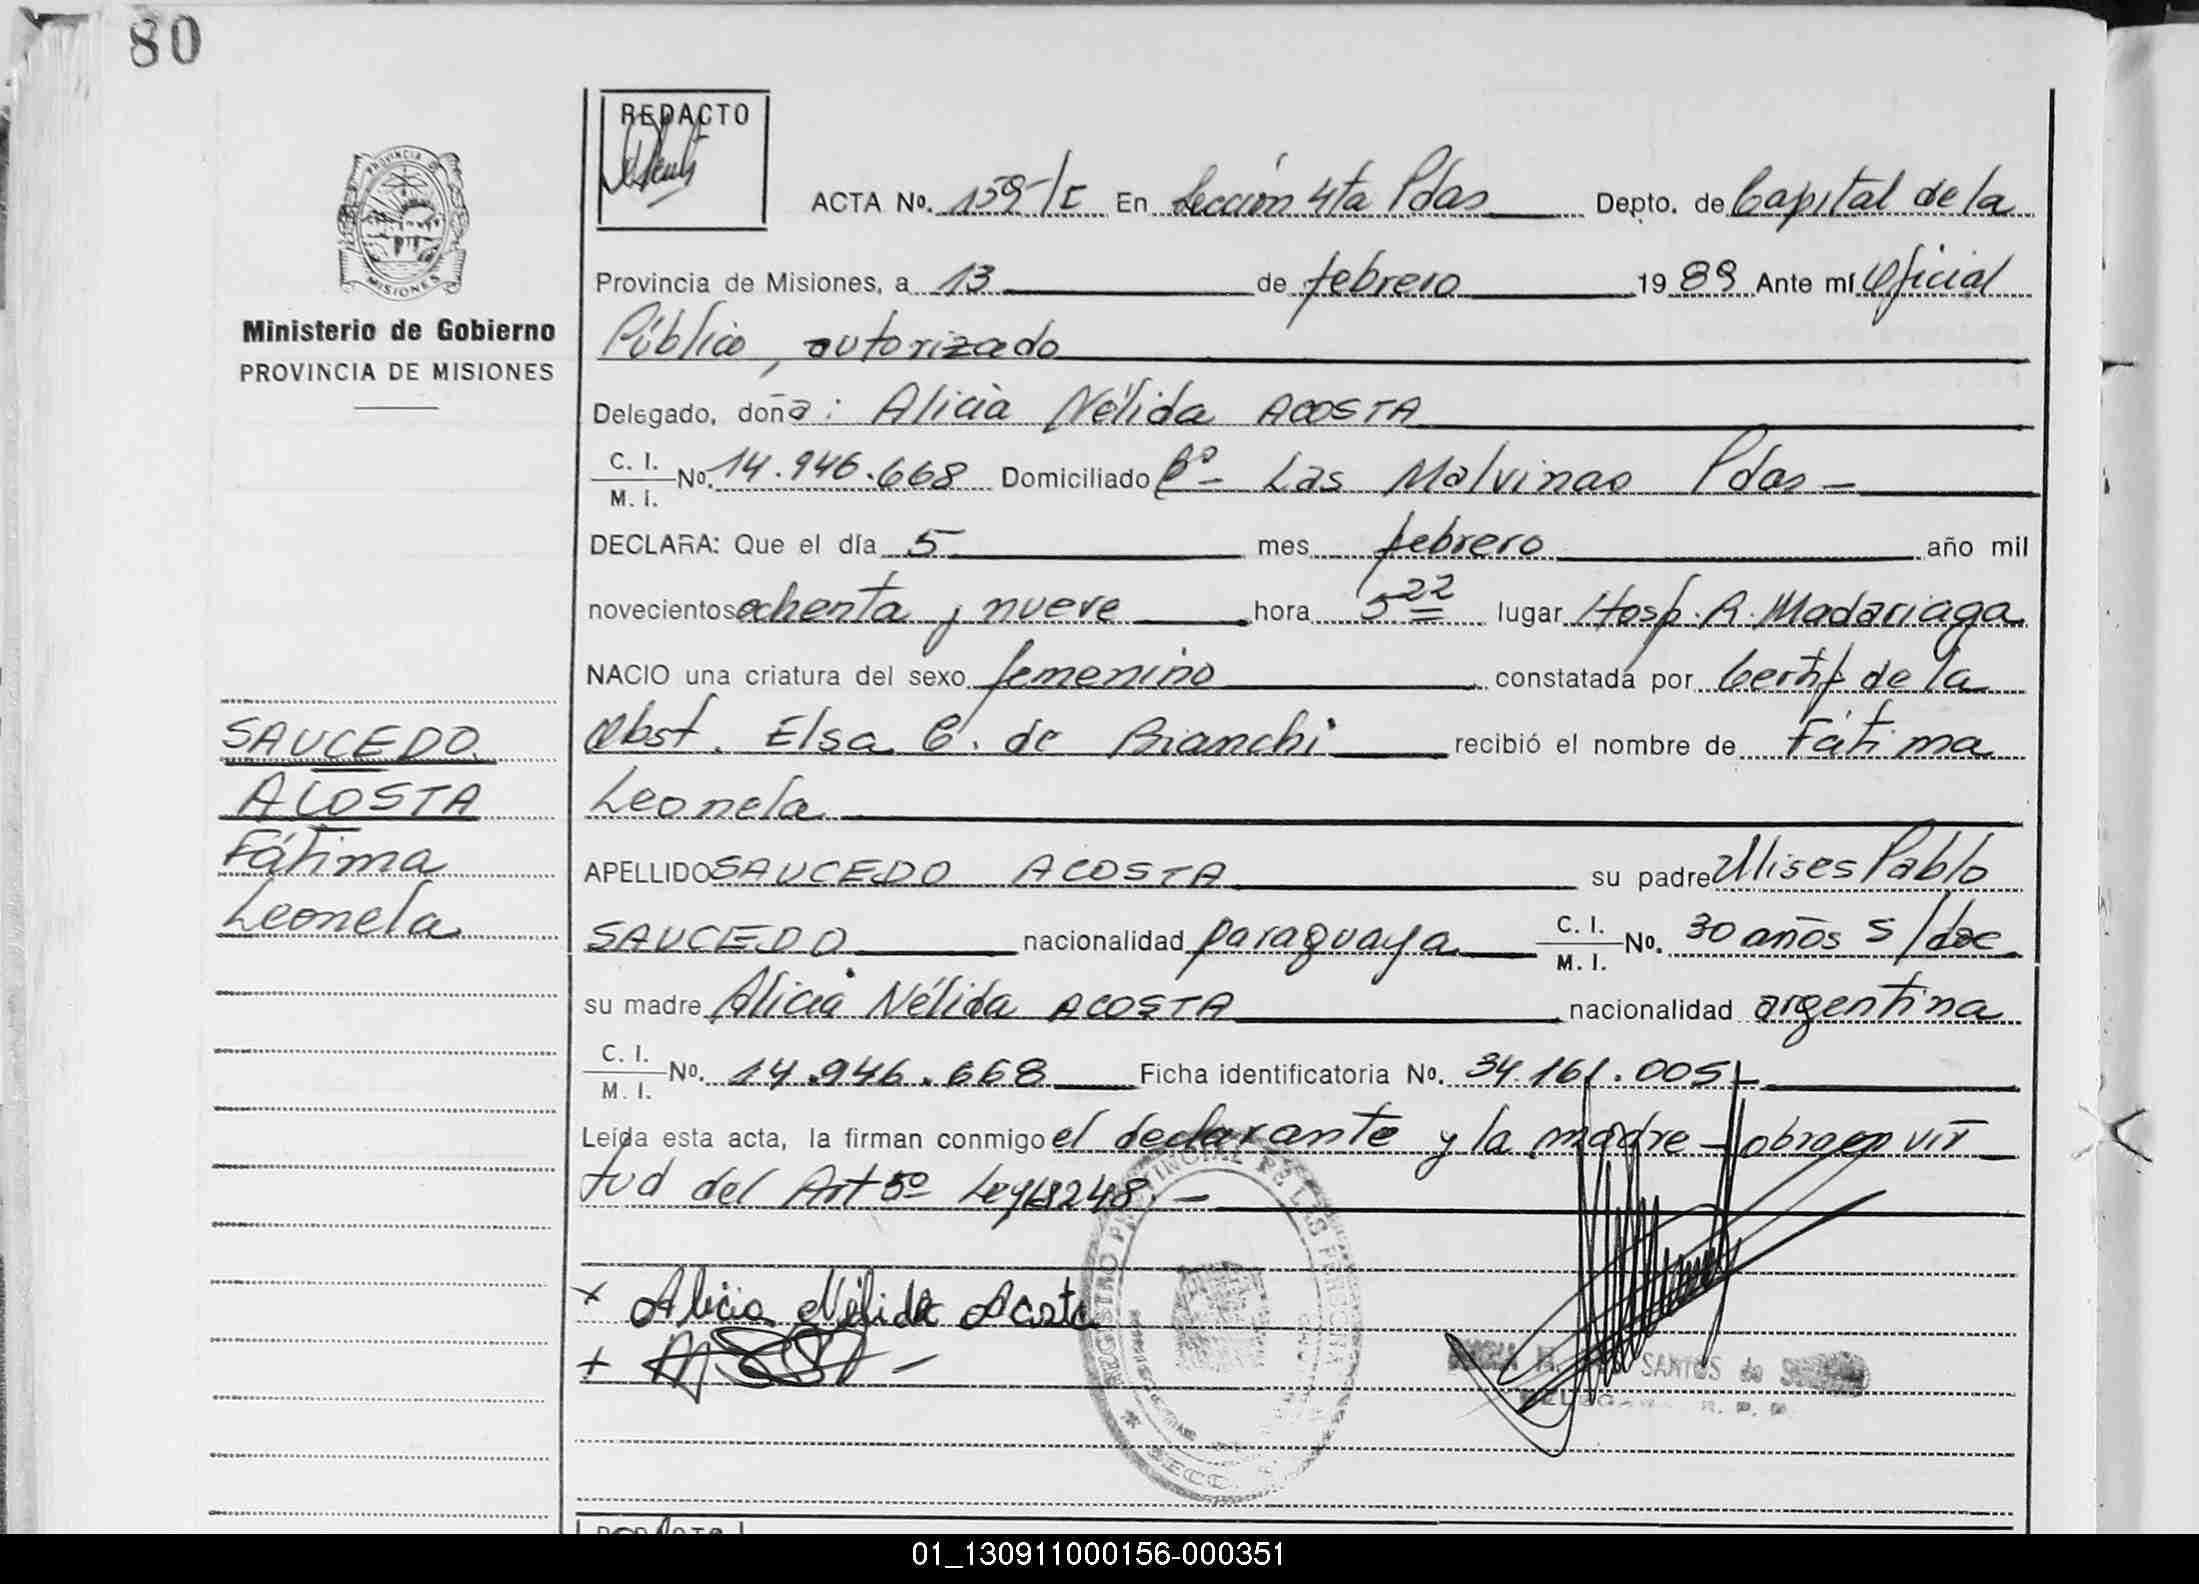 80
REDACTO
ACTA No. 159-/I En Sección 4ta Pdas Depto. de Capital de la
Provincia de Misiones, a 13 de febrero 1989 Ante mí Oficial
Público, autorizado
Ministerio de Gobierno
PROVINCIA DE MISIONES
Delegado, doña: Alicia Nélida ACOSTA
C. I.
M. I. No. 14.946.668 Domiciliado Bº- Las Malvinas Pdas-
DECLARA: Que el día 5 mes febrero año mil
novecientos ochenta y nueve hora 5 22 lugar Hosp. R. Madariaga
NACIO una criatura del sexo femenino constatada por Certif de la
Obst. Elsa C. de Bianchi recibió el nombre de Fátima
Leonela
SAUCEDO
ACOSTA
Fátima
Leonela
APELLIDO SAUCEDO ACOSTA su padre Ulises Pablo
SAUCEDO nacionalidad paraguaya C. I.
M. I. No. 30 años s/doc
su madre Alicia Nélida ACOSTA nacionalidad argentina
C. I.
M. I. No. 14.946.668 Ficha identificatoria No. 34.161.005-
Leída esta acta, la firman conmigo el declarante y la madre - obra en vir
tud del Art 5º Ley 18248.-
+ Alicia Nélida Acosta
REGISTRO PROVINCIAL DE LAS PERSONAS
SANTOS de
MISIONES
01_130911000156-000351